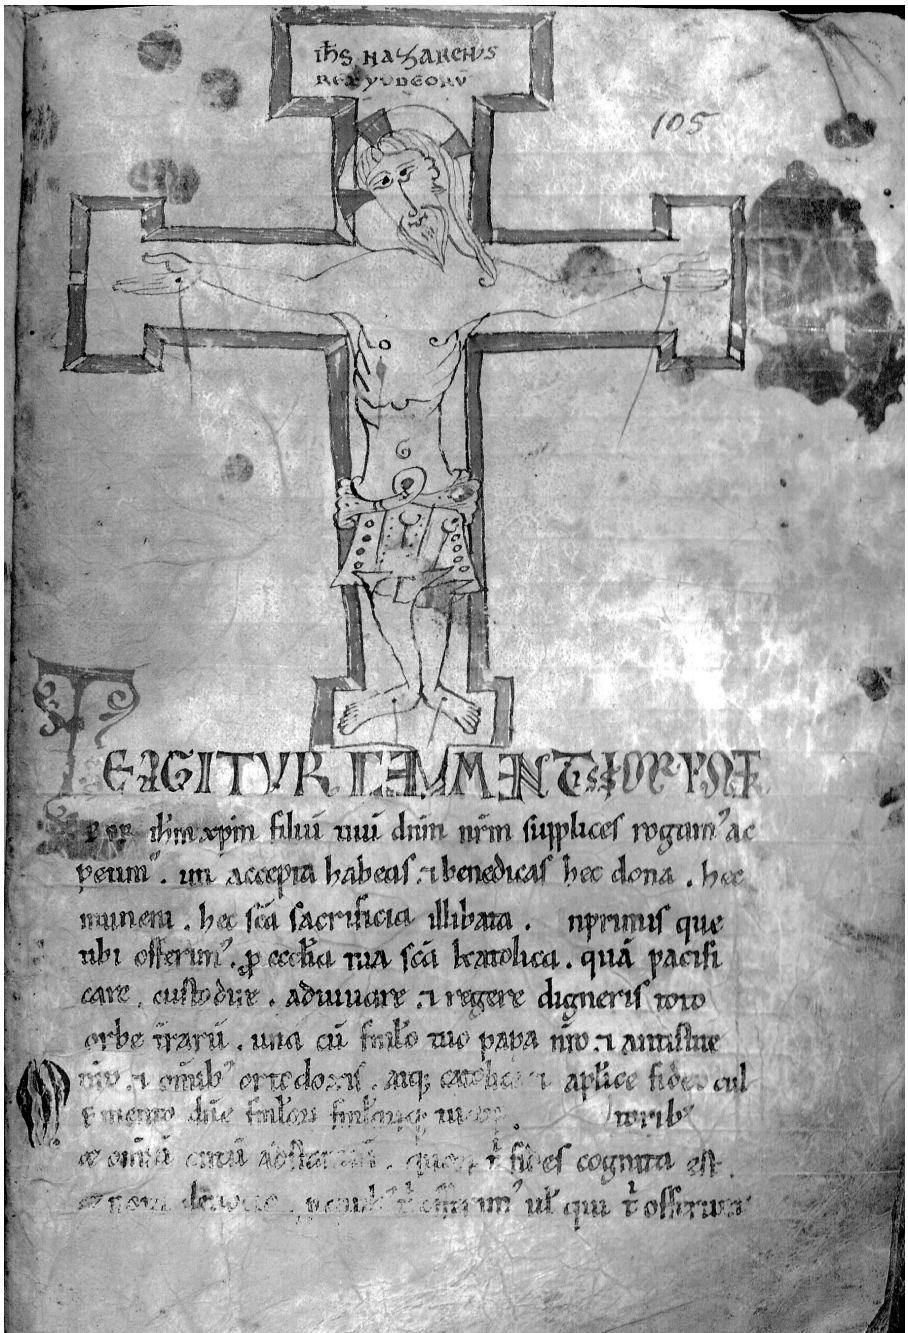 ihs NAZARENUS
REX YUDEORU
105
TE IGITUR CLEMENTISSIME PAT
p̄ ihm xpm filiū tuū dnm nrm supplices rogam᾽ ac
petim᾽. uti accepta habeas ⁊ benedicas hec dona. hec
munera. hec scā sacrificia illibata. nprimis que
tibi offerim᾽. ꝓ ecclia tua scā katolica. quā pacifi
care. custodire. adiuuare. ⁊ regere digneris toto
orbe trarū. una cū famlo tuo papa nro ⁊ antistite
nro. ⁊ omib᾽ ortodoxis. atq; catolice ⁊ aplice fidei cul
memto dne famlou famlauq; tuoɍ. torib᾽
& omiū circū adstantiū. quoɍ t̄ fides cognita est.
& nota deuotio. p quib᾽ t̄ offerim᾽ ul qui t̄ offerunt